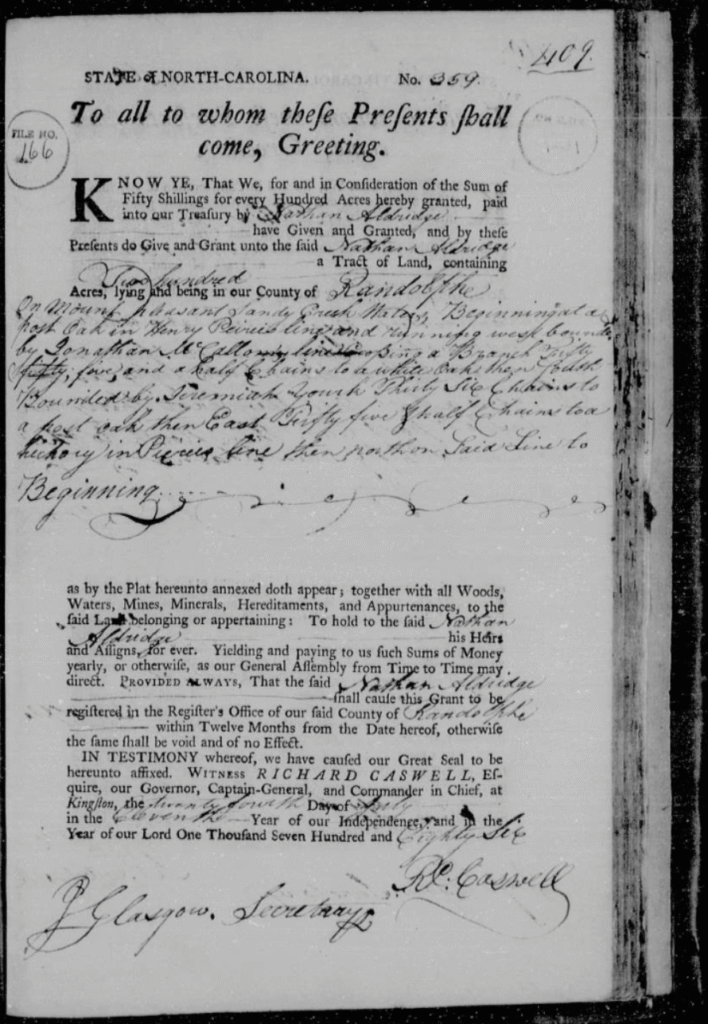 409.
STATE of NORTH-CAROLINA. No. 359.
To all to whom theſe Preſents ſhall
come, Greeting.
FILE NO.
166
KNOW YE, That We, for and in Conſideration of the Sum of
Fifty Shillings for every Hundred Acres hereby granted, paid
into our Treaſury by Nathan Aldridge
have Given and Granted, and by theſe
Preſents do Give and Grant unto the ſaid Nathan Aldridge
a Tract of Land, containing
Two hundred
Acres, lying and being in our County of Randolphe
On Mount pleasant Sandy Creek Waters, Beginning at a
post Oak in Henry Peirces line and running west bounded
by Jonathan McCallom line Crossing a Branch Fifty
fifty, five, and a half Chains to a white Oak then South
Bounded by Jeremiah Thirty Six Chains to
a post oak then East Fifty five & half Chains to a
hickory in Peirces line then north on Said Line to
Beginning
as by the Plat hereunto annexed doth appear; together with all Woods,
Waters, Mines, Minerals, Hereditaments, and Appurtenances, to the
ſaid Land belonging or appertaining: To hold to the ſaid Nathan
Aldridge his Heirs
and Aſſigns, for ever. Yielding and paying to us ſuch Sums of Money
yearly, or otherwiſe, as our General Aſſembly from Time to Time may
direct. PROVIDED ALWAYS, That the ſaid Nathan Aldridge
ſhall cauſe this Grant to be
regiſtered in the Regiſter's Office of our ſaid County of Randolphe
within Twelve Months from the Date hereof, otherwiſe
the ſame ſhall be void and of no Effect.
IN TESTIMONY whereof, we have cauſed our Great Seal to be
hereunto affixed. WITNESS RICHARD CASWELL, Eſ-
quire, our Governor, Captain-General, and Commander in Chief, at
Kingſton, the twenty fourth Day of
in the Eleventh Year of our Independence, and in the
Year of our Lord One Thouſand Seven Hundred and Eighty Six
Rd: Caswell
J Glasgow. Secretary